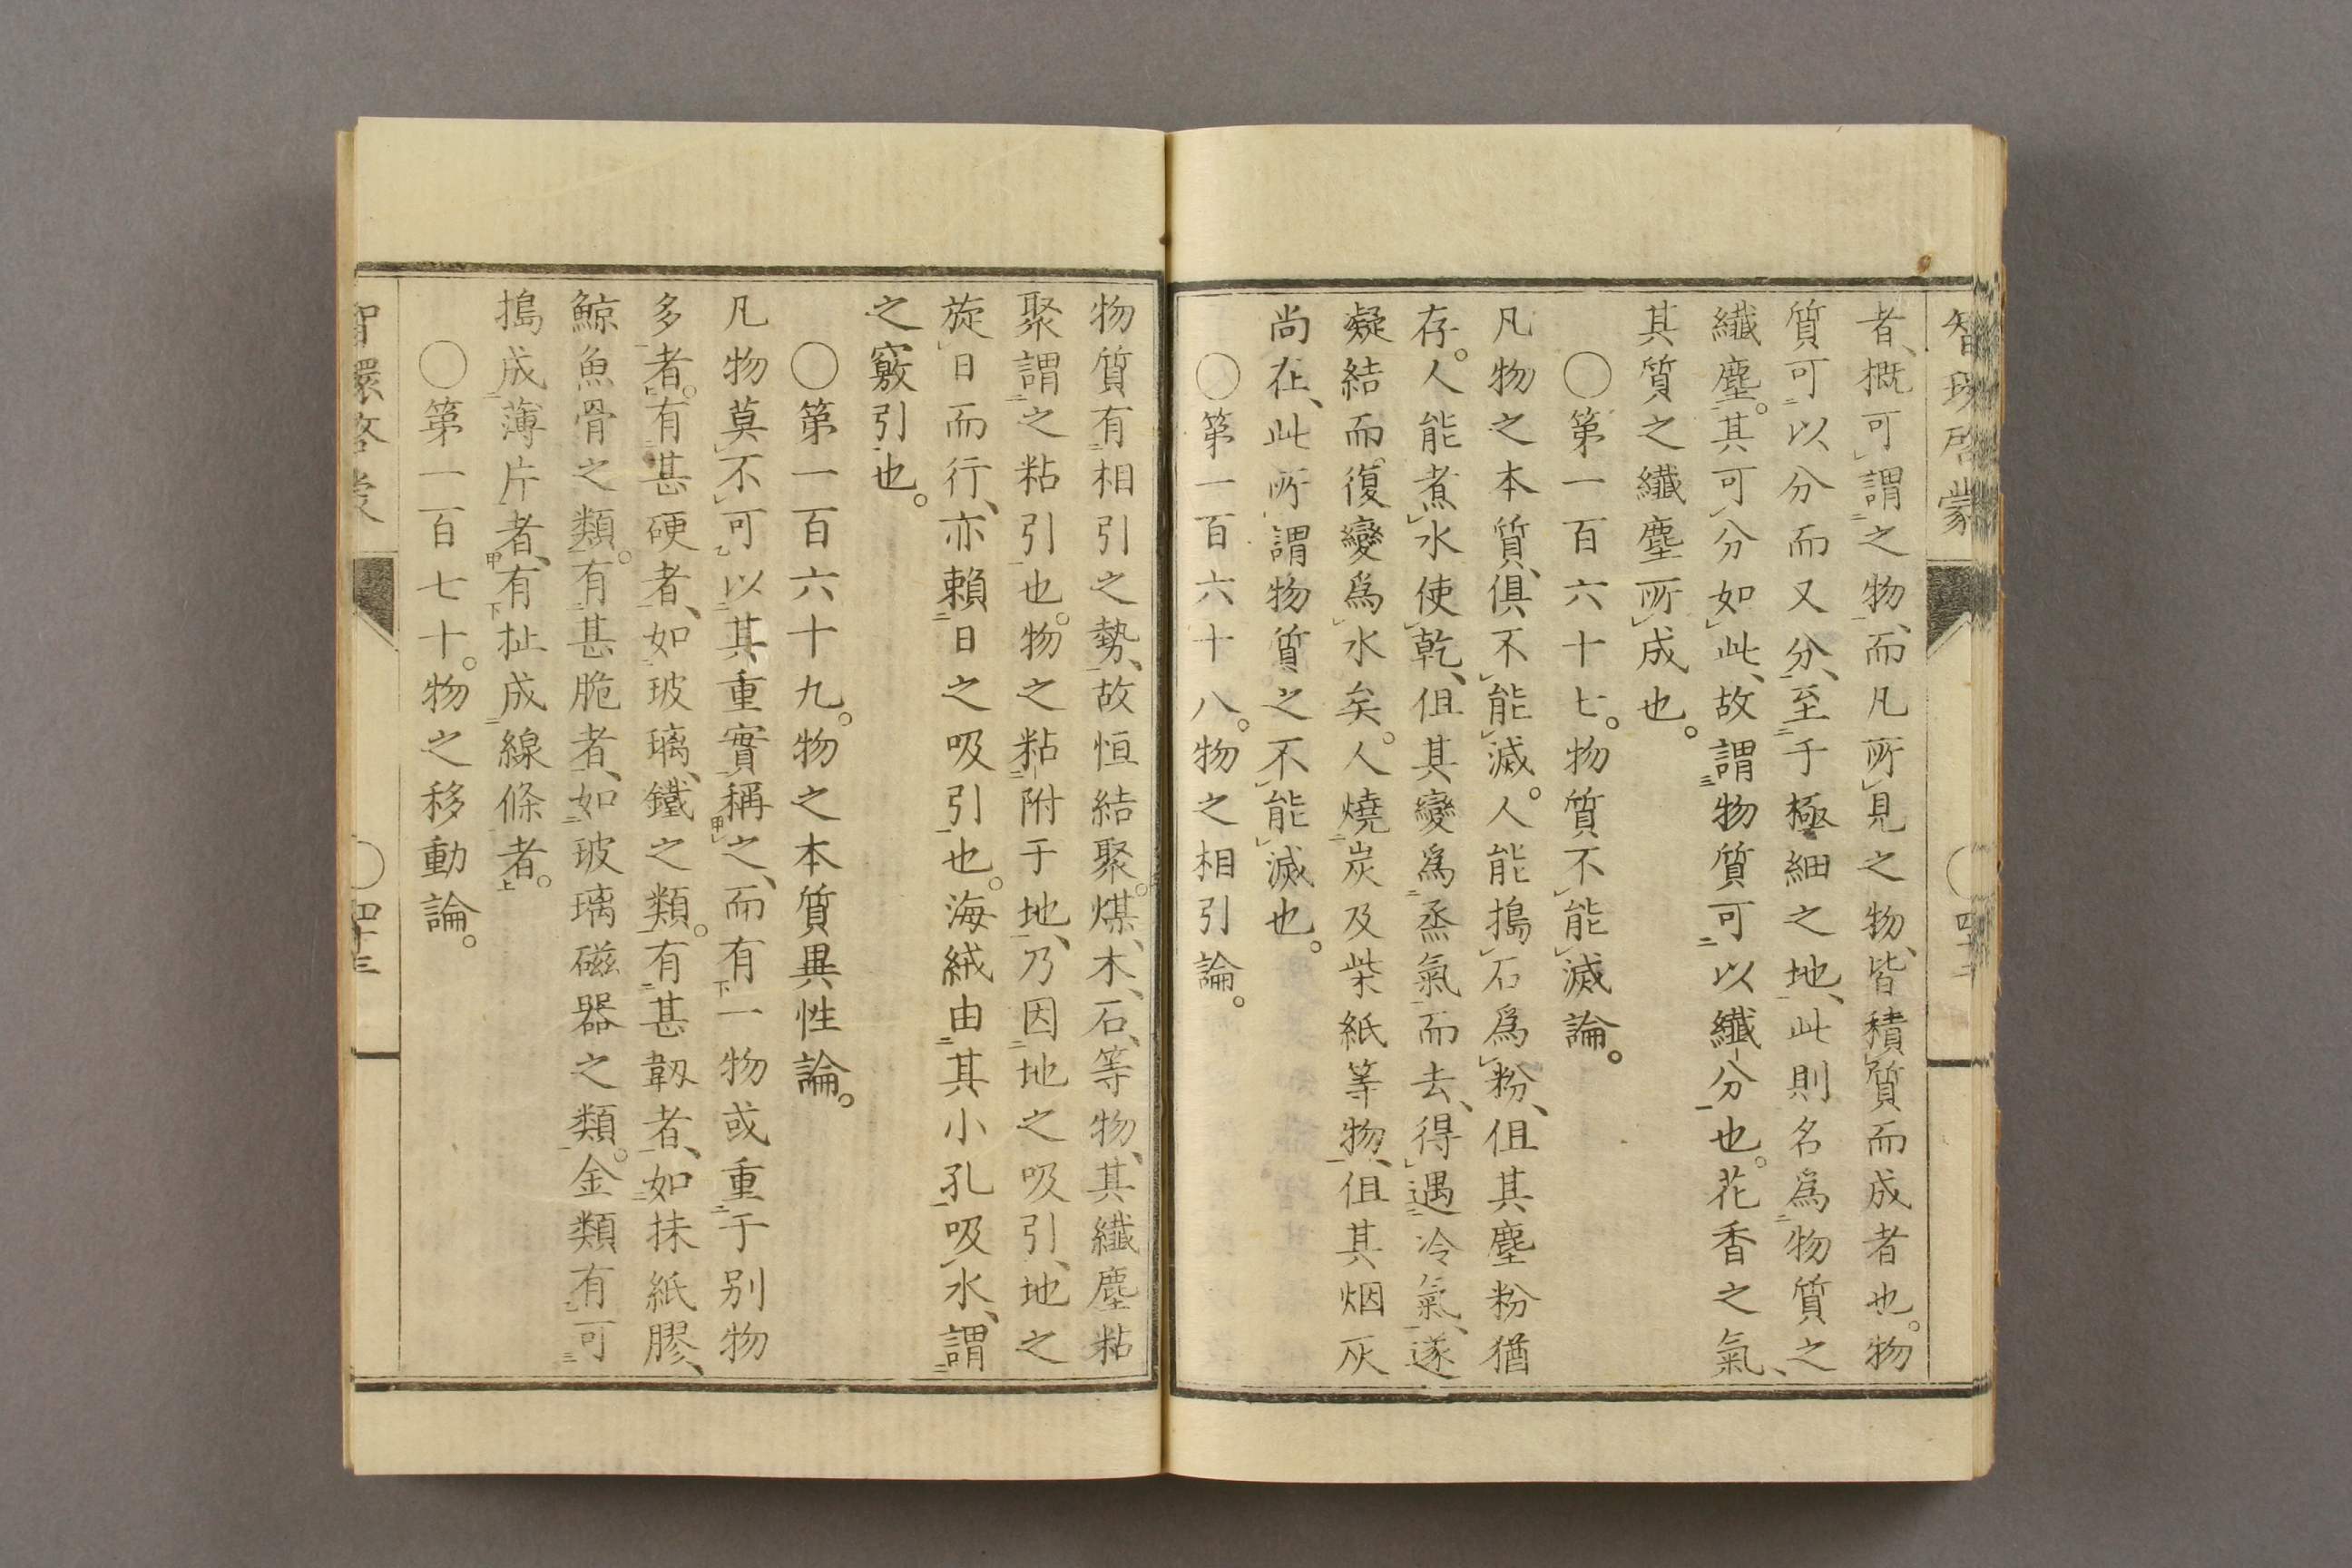 智環啓蒙
四十二
者、概可謂之物、而凡所見之物、皆積質而成者也。物
質可以分而又分、至于極細之地、此則名爲物質之
纖塵。其可分如此、故謂物質可以纖分也。花香之氣、
其質之纖塵所成也。
〇第一百六十七。物質不能滅論。
凡物之本質、俱不能滅。人能搗石爲粉、但其塵粉猶
存。人能煮水使乾、但其變爲烝氣而去、得遇冷氣、遂
凝結而復變爲水矣。人燒炭及柴紙等物、但其烟灰
尚在、此所謂物質之不能滅也。
〇第一百六十八。物之相引論。
物質有相引之勢、故恒結聚。煤、木、石、等物、其纖塵粘
聚謂之粘引也。物之粘附于地、乃因地之吸引、地之
旋日而行、亦賴日之吸引也。海絨由其小孔吸水、謂
之竅引也。
〇第一百六十九。物之本質異性論。
凡物莫不可以其重實稱之、而有一物或重于别物
多者。有甚硬者、如玻璃、鐵之類。有甚韌者、如抹紙膠、
鯨魚骨之類。有甚脆者、如玻璃磁器之類。金類有可
搗成薄片者、有扯成線條者。
〇第一百七十。物之移動論。
智環啓蒙
〇四十三